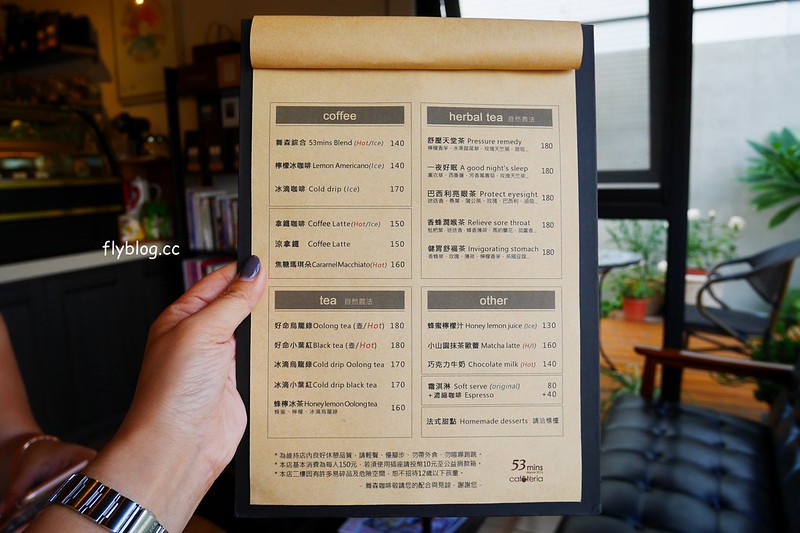 coffee
舞森綜合 53mins Blend (Hot/Ice) 140
檸檬冰咖啡 Lemon Americano (Ice) 140
冰滴咖啡 Cold drip (Ice) 170
拿鐵咖啡 Coffee Latte (Hot/Ice) 150
涼拿鐵 Coffee Latte 150
焦糖瑪琪朵 Caramel Macchiato (Hot) 160
herbal tea 自然農法
舒壓天堂茶 Pressure remedy 180
一夜好眠 A good night's sleep 180
薰衣草、西番蓮、芳香萬壽菊、玫瑰天竺葵...
巴西利亮眼茶 Protect eyesight 180
香蜂潤喉茶 Relieve sore throat 180
健胃舒福茶 Invigorating stomach 180
tea 自然農法
好命烏龍綠 Oolong tea (壺/Hot) 180
好命小葉紅 Black tea (壺/Hot) 180
冰滴烏龍綠 Cold drip Oolong tea 170
冰滴小葉紅 Cold drip black tea 170
蜂檸冰茶 Honey lemon Oolong tea 160
蜂蜜、檸檬、冰滴烏龍綠
other
蜂蜜檸檬汁 Honey lemon juice (Ice) 130
小山園抹茶歐蕾 Matcha latte (H/I) 160
巧克力牛奶 Chocolate milk (Hot) 140
霜淇淋 Soft serve (original) 80
+濃縮咖啡 Espresso +40
法式甜點 Homemade desserts 請洽櫃檯
*為維持店內良好休憩品質，請輕聲、慢腳步、勿帶外食、勿喧嘩跑跳。
*本店基本消費為每人150元，若須使用插座請投幣10元至公益捐款箱。
*本店二樓因有許多易碎品及危險空間，恕不招待12歲以下孩童。
-舞森咖啡敬請您的配合與見諒，謝謝您-
53 mins
cafeteria
flyblog.cc